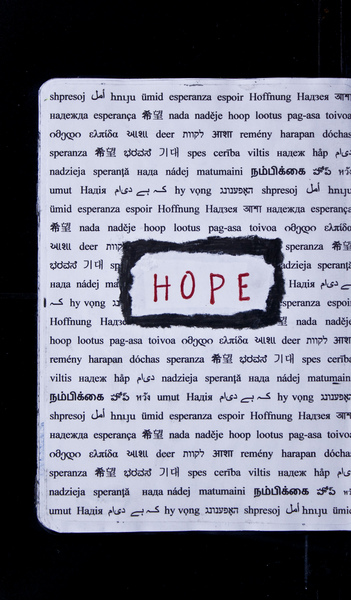 shpresoj أمل հույս ümid esperanza espoir Hoffnung Надзея
надежда esperança 希望 nada naděje hoop lootus pag-asa toivoa
იმედი ελπίδα આશા deer לקוות आशा remény harapan dóchas
speranza 希望 ಭರವಸೆ 기대 spes cerība viltis надеж håp
nadzieja speranță нада nádej matumaini நம்பிக்கை హోప్
umut Надія کہ بے دی ام hy vọng האָפענונג shpresoj أمل հույս
ümid esperanza espoir Hoffnung Надзея আশা надежда esperança
希望 nada naděje hoop lootus pag-asa toivoa იმედი ελπίδα
આશા deer speranza 希望
ಭರವಸೆ 기대 sp nadzieja speranță
нада nádej Надія دی ام
کہ بے hy vọng esperanza espoir
Hoffnung 希望 nada naděje
HOPE
hoop lootus pag-asa toivoa იმედი ελπίδα આશા deer לקוות आशा
remény harapan dóchas speranza 希望 ಭರವಸೆ 기대 spes cerība
viltis надеж håp دی ام nadzieja speranță нада nádej matumaini
நம்பிக்கை హోప్ หวัง umut Надія کہ بے دی ام hy vọng האָפענונג
shpresoj أمل հույս ümid esperanza espoir Hoffnung Надзея
надежда esperança 希望 nada naděje hoop lootus pag-asa toivoa
იმედი ελπίδα આશા deer לקוות आशा remény harapan dóchas
speranza 希望 ಭರವಸೆ 기대 spes cerība viltis надеж håp
nadzieja speranță нада nádej matumaini நம்பிக்கை హోప్
umut Надія کہ بے دی ام hy vọng האָפענונג shpresoj أمل հույս ümid